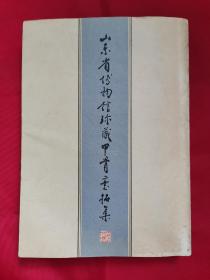 山东省博物馆珍藏甲骨墨拓集